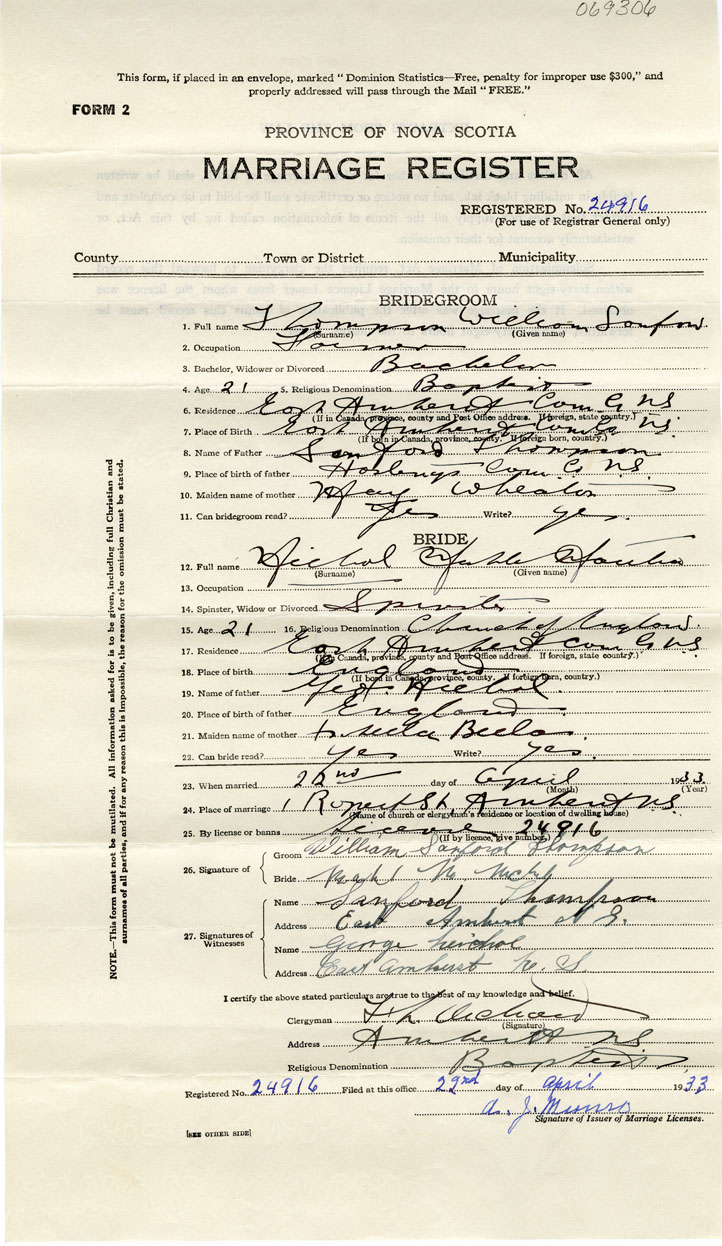 069306
This form, if placed in an envelope, marked "Dominion Statistics—Free, penalty for improper use $300," and
properly addressed will pass through the Mail "FREE."
FORM 2
PROVINCE OF NOVA SCOTIA
MARRIAGE REGISTER
REGISTERED No. 24916
(For use of Registrar General only)
County Town or District Municipality
BRIDEGROOM
1. Full name Thompson William Sanford
(Surname) (Given name)
2. Occupation Farmer
3. Bachelor, Widower or Divorced Bachelor
4. Age 21 5. Religious Denomination Baptist
6. Residence East Amherst Cum. Co NS
(If in Canada, province, county and Post Office address. If foreign, state country.)
7. Place of Birth East Amherst Cum Co NS.
(If born in Canada, province, county. If foreign born, country.)
8. Name of Father Sanford Thompson
9. Place of birth of father Hastings Cum. Co NS.
10. Maiden name of mother May Wheaton
11. Can bridegroom read? Yes Write? Yes.
BRIDE
12. Full name Nichol Mable
(Surname) (Given name)
13. Occupation
14. Spinster, Widow or Divorced Spinster
15. Age 21 16. Religious Denomination Church of England
17. Residence East Amherst Cum Co NS
(If in Canada, province, county and Post Office address. If foreign, state country.)
18. Place of birth England
(If born in Canada, province, county. If foreign born, country.)
19. Name of father Geo. Nichol
20. Place of birth of father England
21. Maiden name of mother
22. Can bride read? yes Write? yes.
23. When married 22nd day of April 1933
(Month) (Year)
24. Place of marriage 1 Rupert St. Amherst NS
(Name of church or clergyman's residence or location of dwelling house)
25. By license or banns License 24916
(If by licence, give number.)
26. Signature of
Groom William Sanford Thompson
Bride
27. Signatures of Witnesses
Name Sanford Thompson
Address East Amherst N S.
Name George
Address East Amherst N. S.
I certify the above stated particulars are true to the best of my knowledge and belief.
Clergyman
(Signature)
Address Amherst NS
Religious Denomination Baptist
Registered No. 24916 Filed at this office 22nd day of April 1933
A. J. Munro
Signature of Issuer of Marriage Licenses.
[SEE OTHER SIDE]
NOTE.—This form must not be mutilated. All information asked for is to be given, including full Christian and
surnames of all parties, and if for any reason this is impossible, the reason for the omission must be stated.